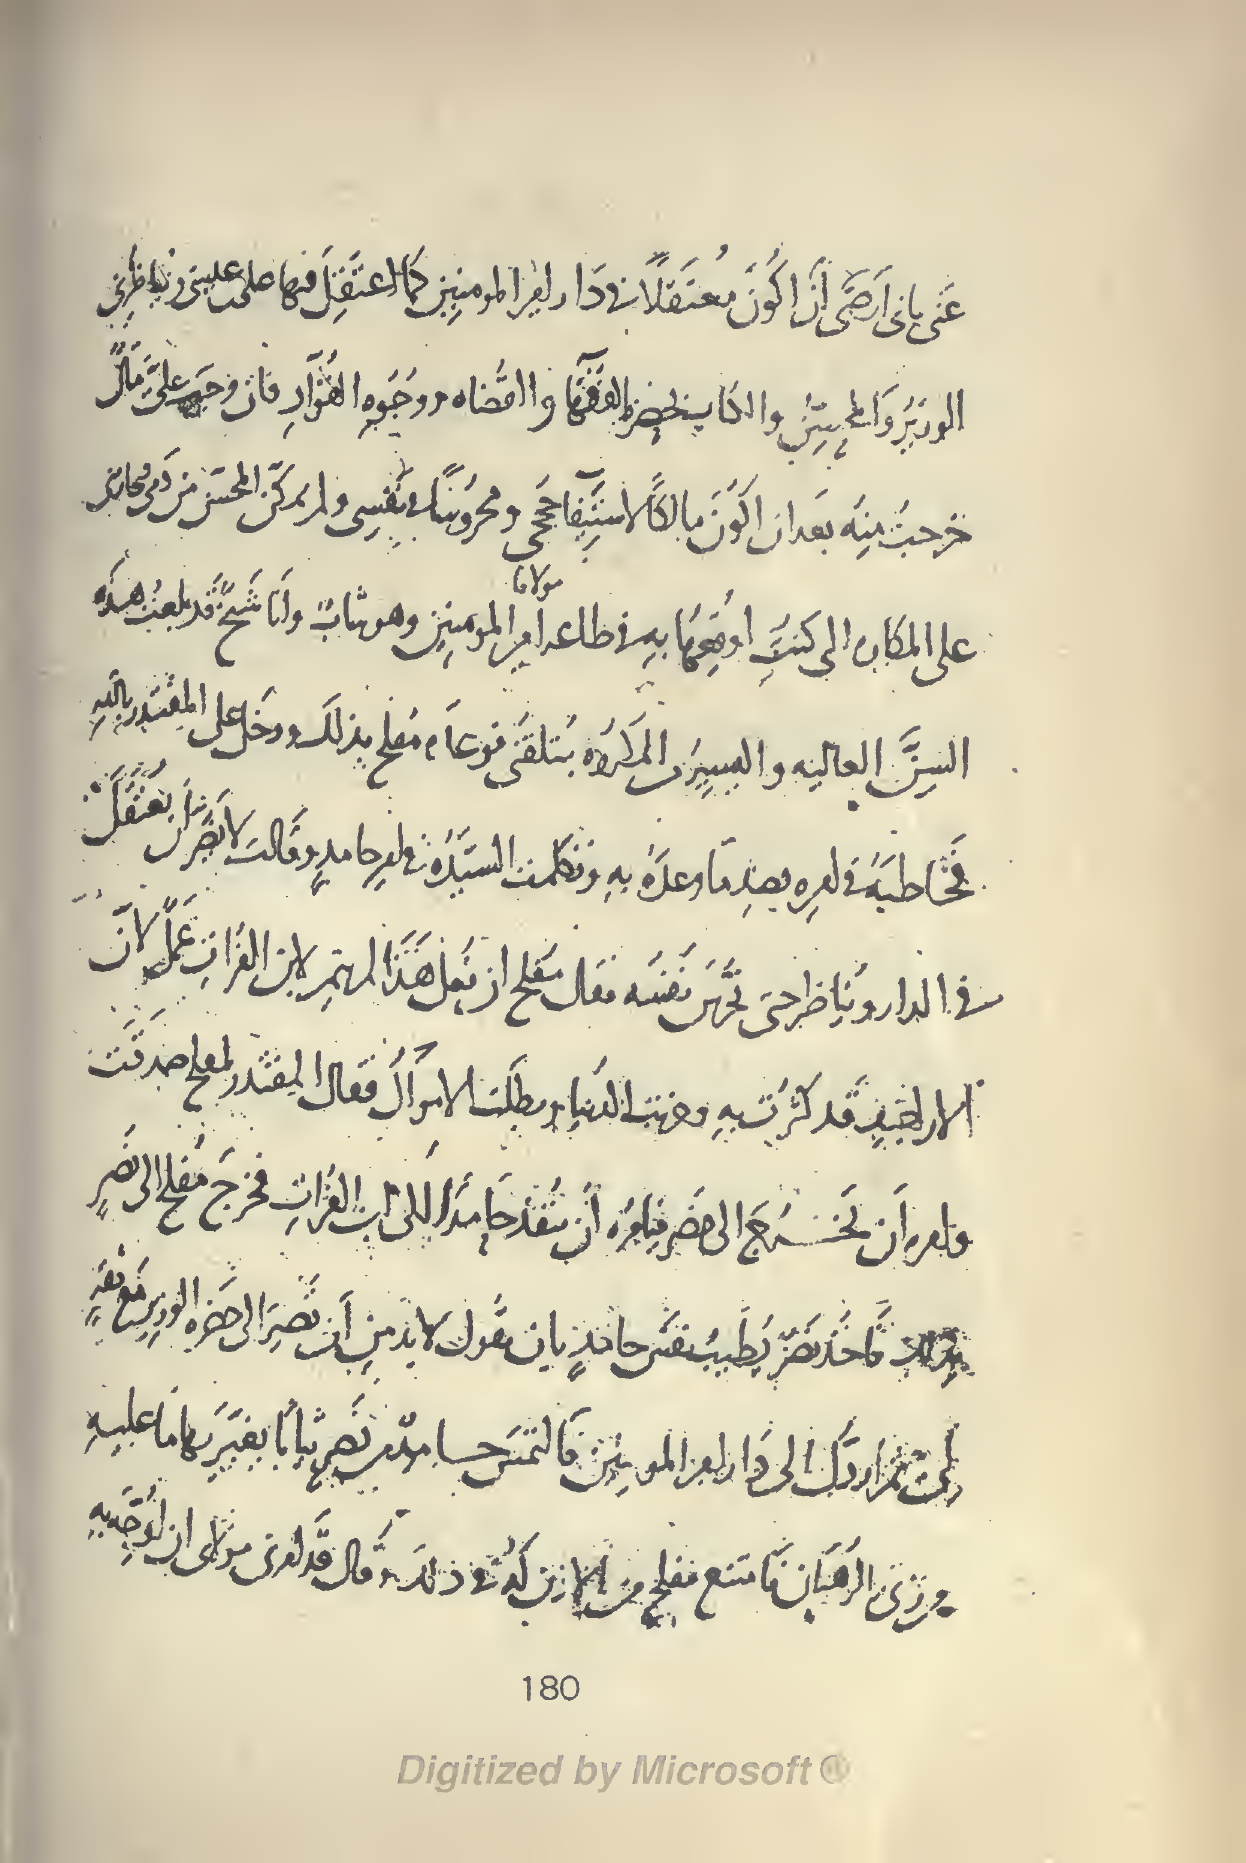 عنى بانى ارضى أن اكون معتقلا فى دار امير المومنين كما اعتقل فيها على بن عيسى ويناظرنى
الوزير والمحسن والكتاب بحضرة الفقهآ والقضاه ووجوه القواد فان وجب على مال
خرجت منه بعد ان اكون مالكا لاستيفآ حججى ومحروسا فى نفسى ولم يمكن المحسن من دمى فيجازينى
على المكاره التى كنت اوقعها به فى طاعة امير المومنين وهو شاب وانا شيخ قد بلغت هذه
مولانا
السن العاليه واليسير من المكروه يتلفنى فوعده مفلح بذلك ودخل على المقتدر بالله
فخاطبه فى امره بضد ما وعده به وتكلمت السيده فى امر حامد وقالت لا يضر ان يعتقل
فى الدار ويناظر حتى تحرس نفسه فقال مفلح ان فعل هذا لم يتم لابن الفرات عمل لان
الاراجيف قد كثرت به وخربت الدنيا وبطلت الاموال فقال المقتدر لمفلح صدقت
وامره أن يخرج الى نصر فيامره أن ينفذ حامدا الى ابن الفرات فخرج مفلح الى نصر
فاخذ نصر يطيب نفس حامد بان يقول لا بد من أن تصير الى حضرة الوزير مع ثقة
لى ثم اردك الى دار امير المومنين فالتمس حامد من نصر ثيابا يغير بها ما عليه
من زى الرهبان فامتنع مفلح من الاذن له فى ذلك وقال قد امرنى مولاى ان اوجه به
180
Digitized by Microsoft ®